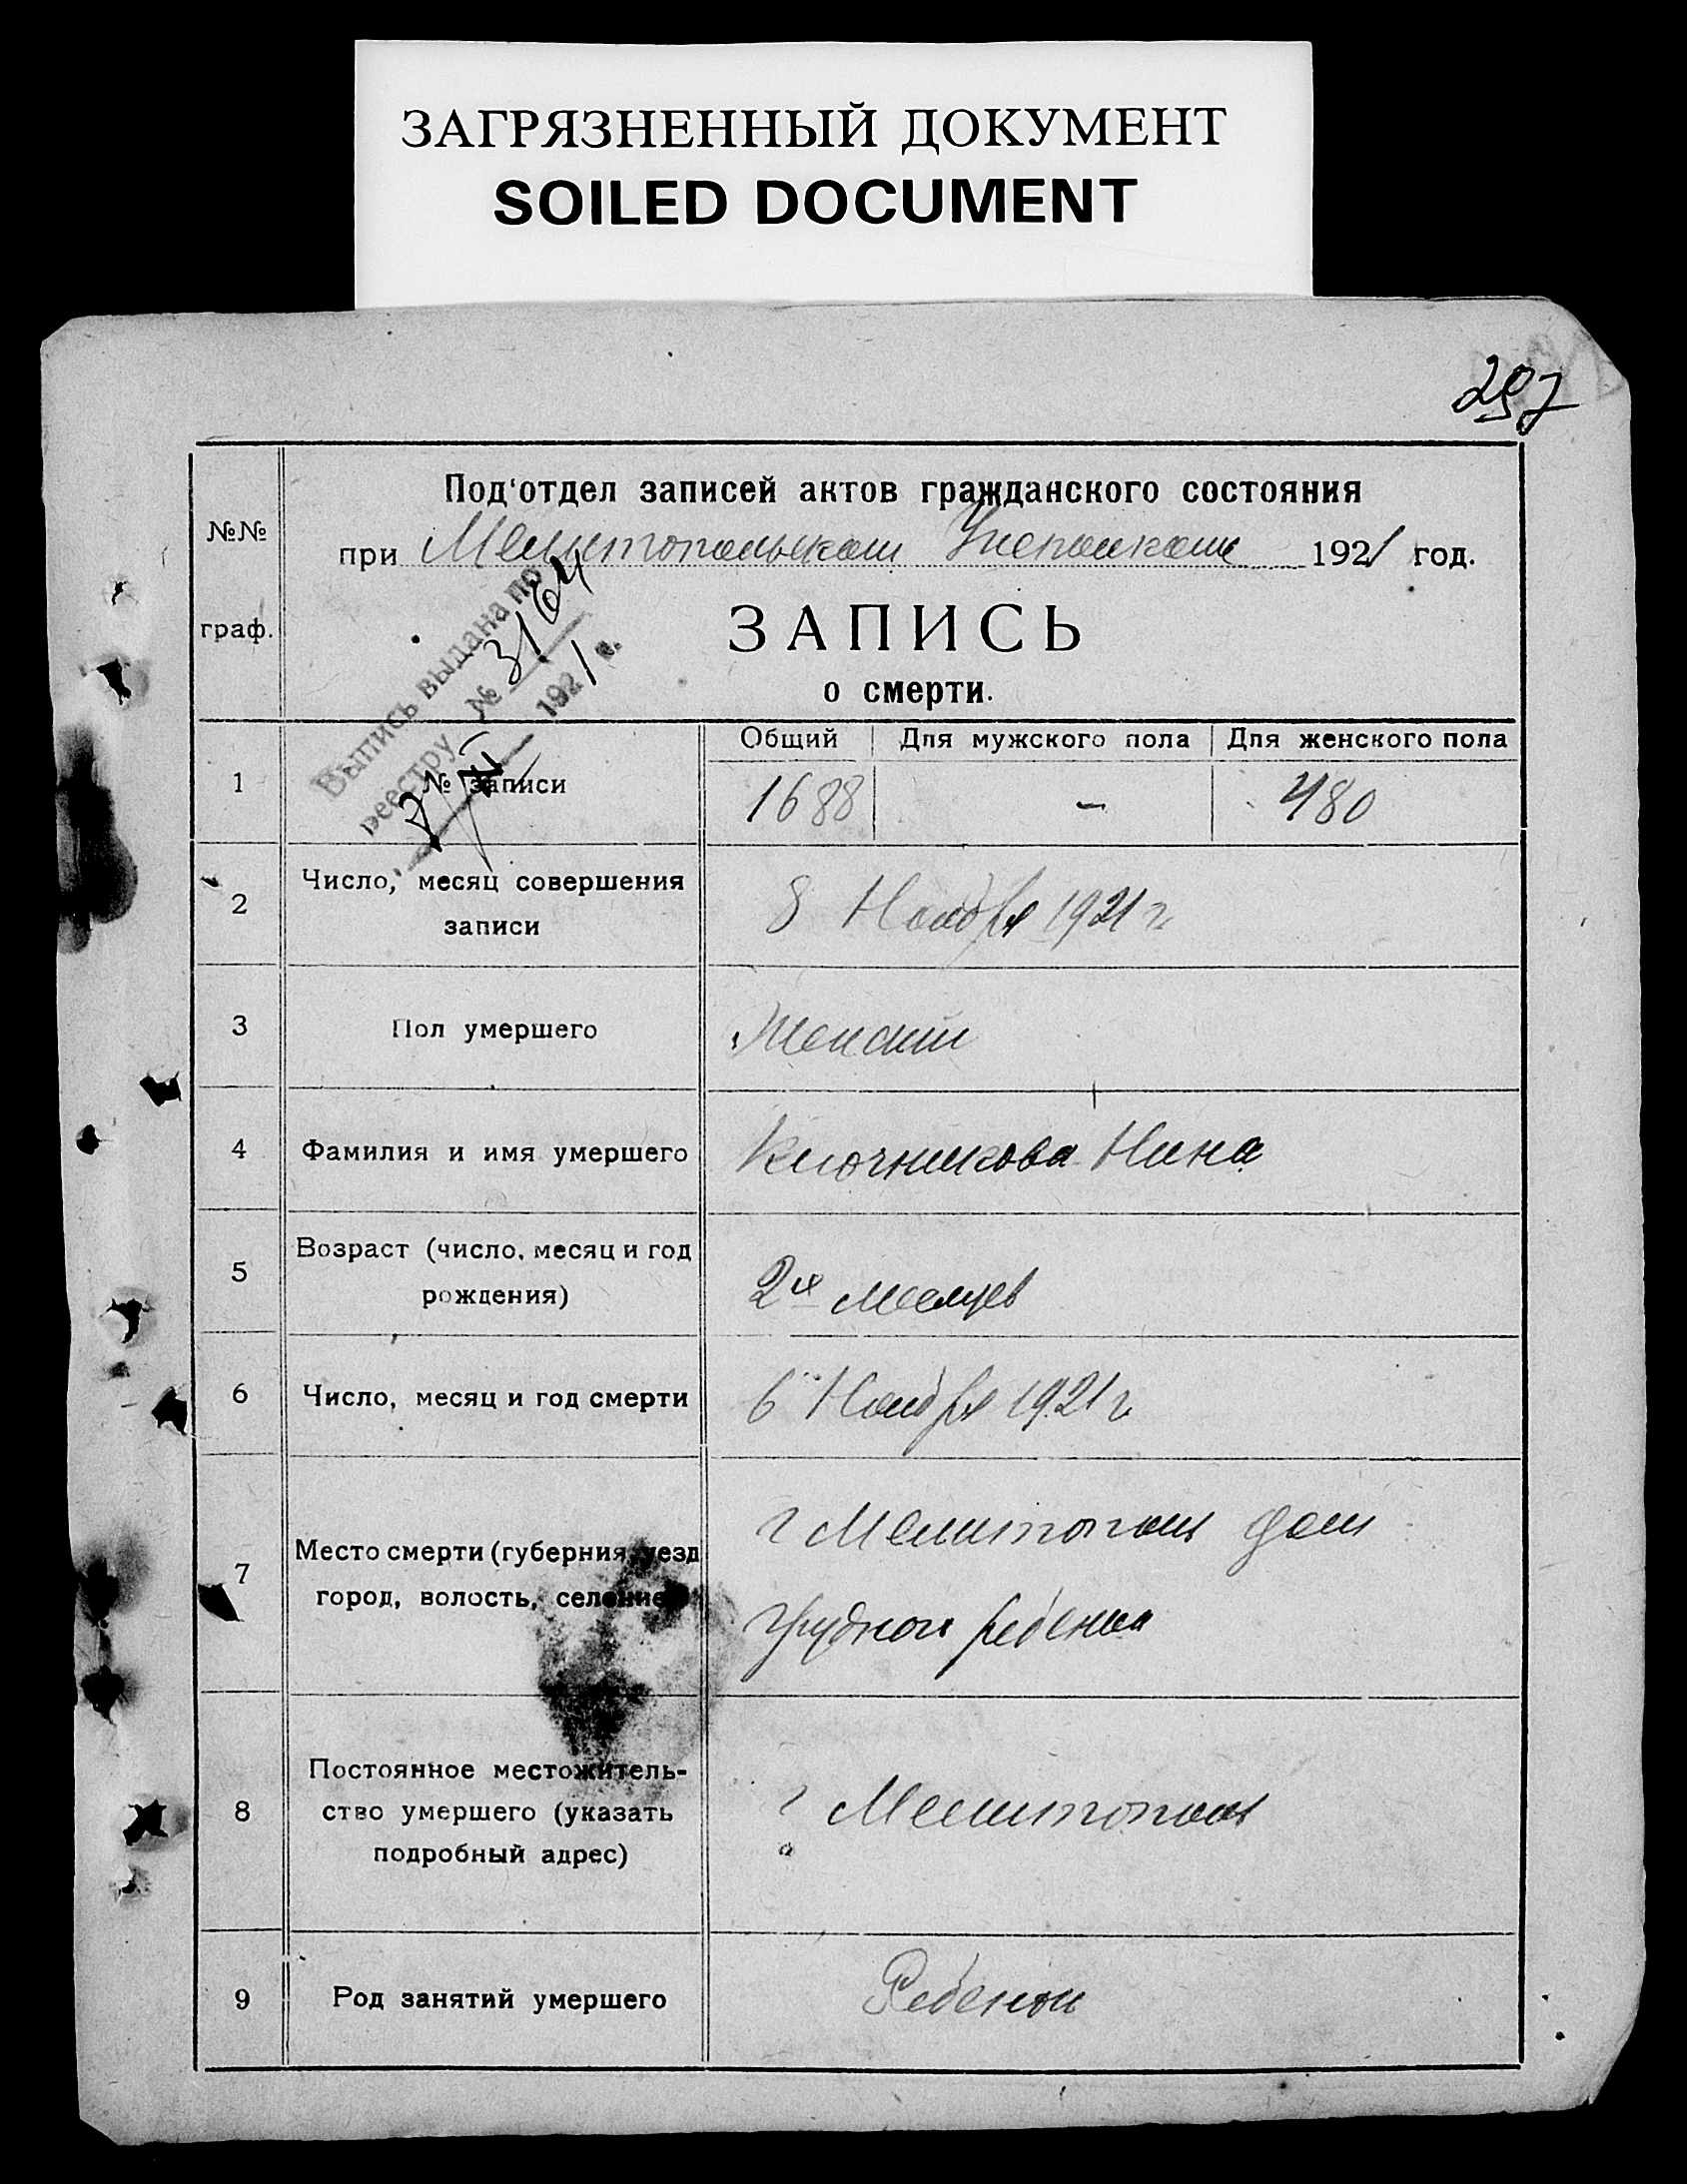 ЗАГРЯЗНЕННЫЙ ДОКУМЕНТ
SOILED DOCUMENT
297
№№
граф.
Под'отдел записей актов гражданского состояния
при Мелитопольском Уисполкоме 1921 год.
ЗАПИСЬ
о смерти.
Выпись выдана по
реестру № 3164
8/XI 1921 г.
Общий Для мужского пола Для женского пола
1 № записи 1688 – 480
2 Число, месяц совершения
записи
8 Ноября 1921 г
3 Пол умершего Женский
4 Фамилия и имя умершего Ключникова Нина
5 Возраст (число, месяц и год
рождения)
2х месяцев
6 Число, месяц и год смерти 6 Ноября 1921 г
7 Место смерти (губерния, уезд
город, волость, селение)
г Мелитополь дом
грудного ребенка
8 Постоянное местожитель-
ство умершего (указать
подробный адрес)
г Мелитополь
9 Род занятий умершего Ребенок